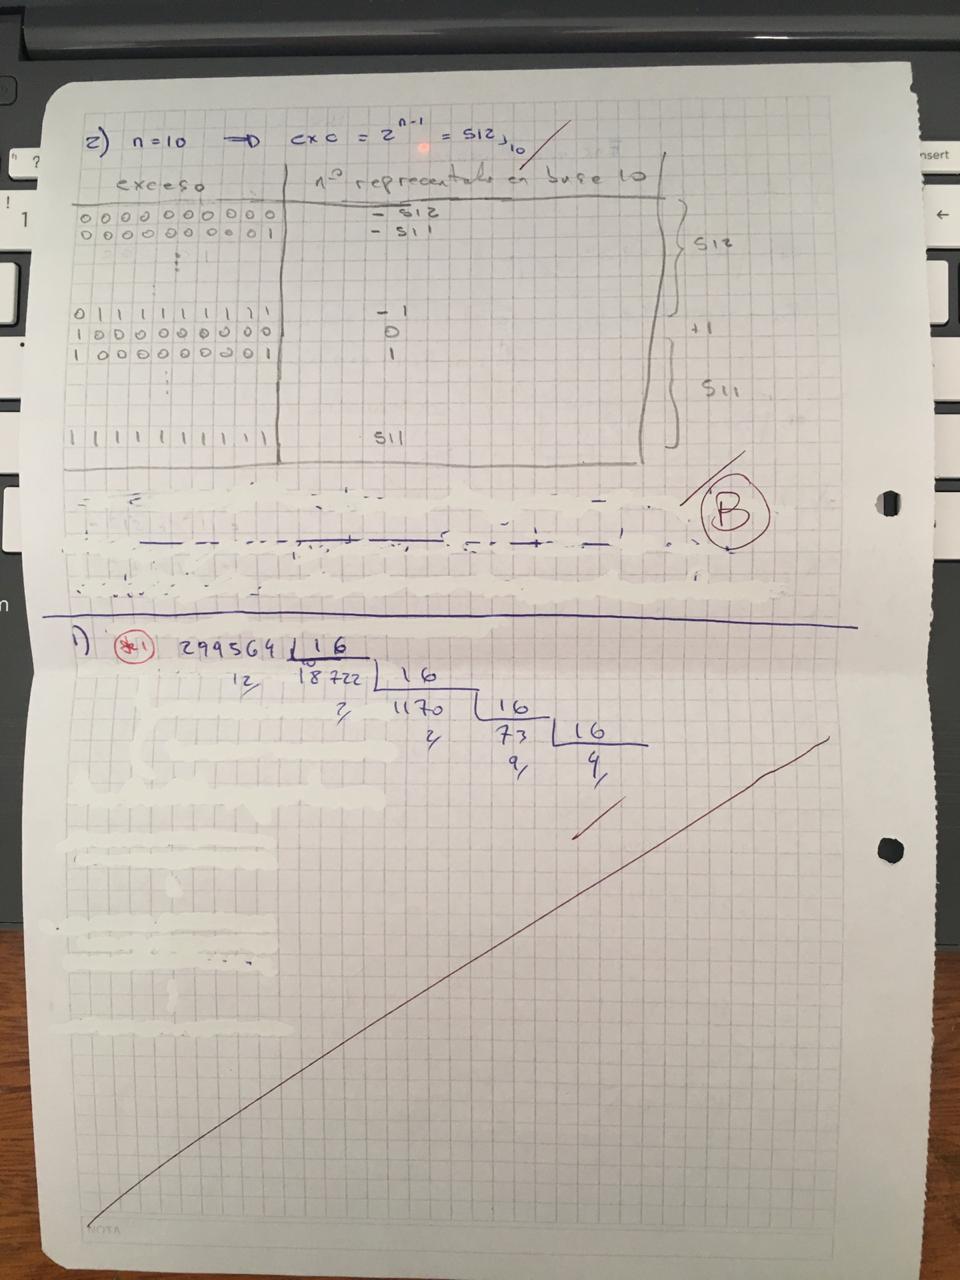 2) n=10 ⇒ exc = 2^(n-1) = 512)₁₀
exceso | nº representado en base 10
0000000000 | -512
0000000001 | -511
512
⋮
0111111111 | -1
1000000000 | 0
+1
1000000001 | 1
⋮
511
1111111111 | 511
B
1) *1 299564 | 16
12 18722 | 16
2 1170 | 16
2 73 | 16
9 4
NOTA
?
!
1
nsert
←
n